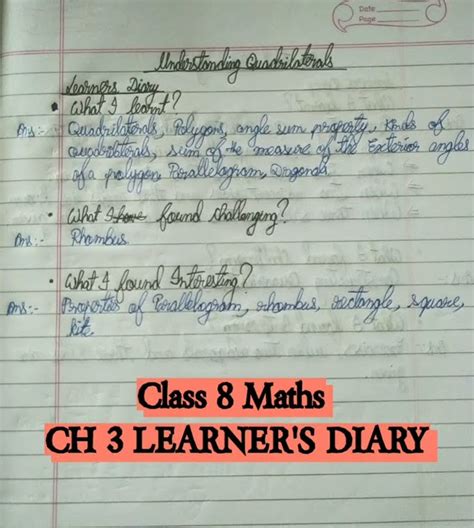 Date
Page
Understanding Quadrilaterals
Learners Diary
• What I learnt?
Ans:- Quadrilaterals, Polygons, angle sum property, Kinds of
quadrilaterals, sum of the measure of the Exterior angles
of a polygon. Parallelogram, Diagonals.
• What I have found challanging?
Ans:- Rhombus.
• What I found Interesting?
Ans:- Properties of Parallelogram, rhombus, rectangle, square,
kite.
Class 8 Maths
CH 3 LEARNER'S DIARY